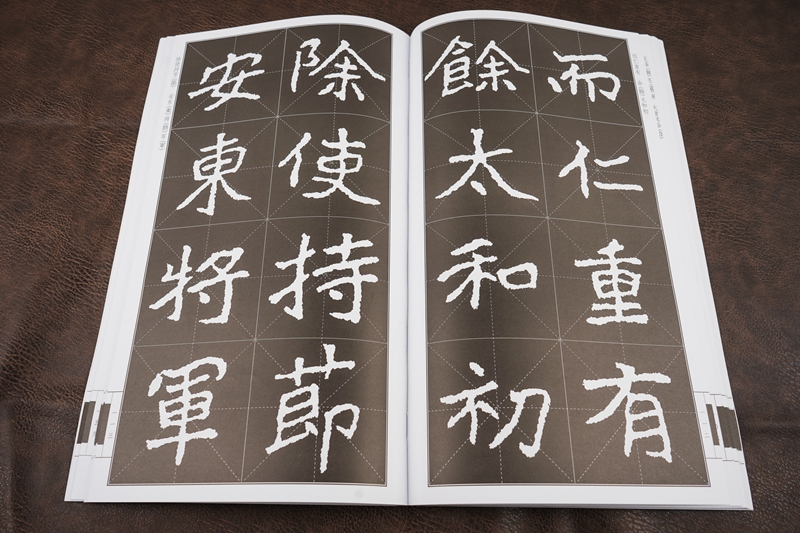 而仁重有
餘太和初
除使持節
安東將軍